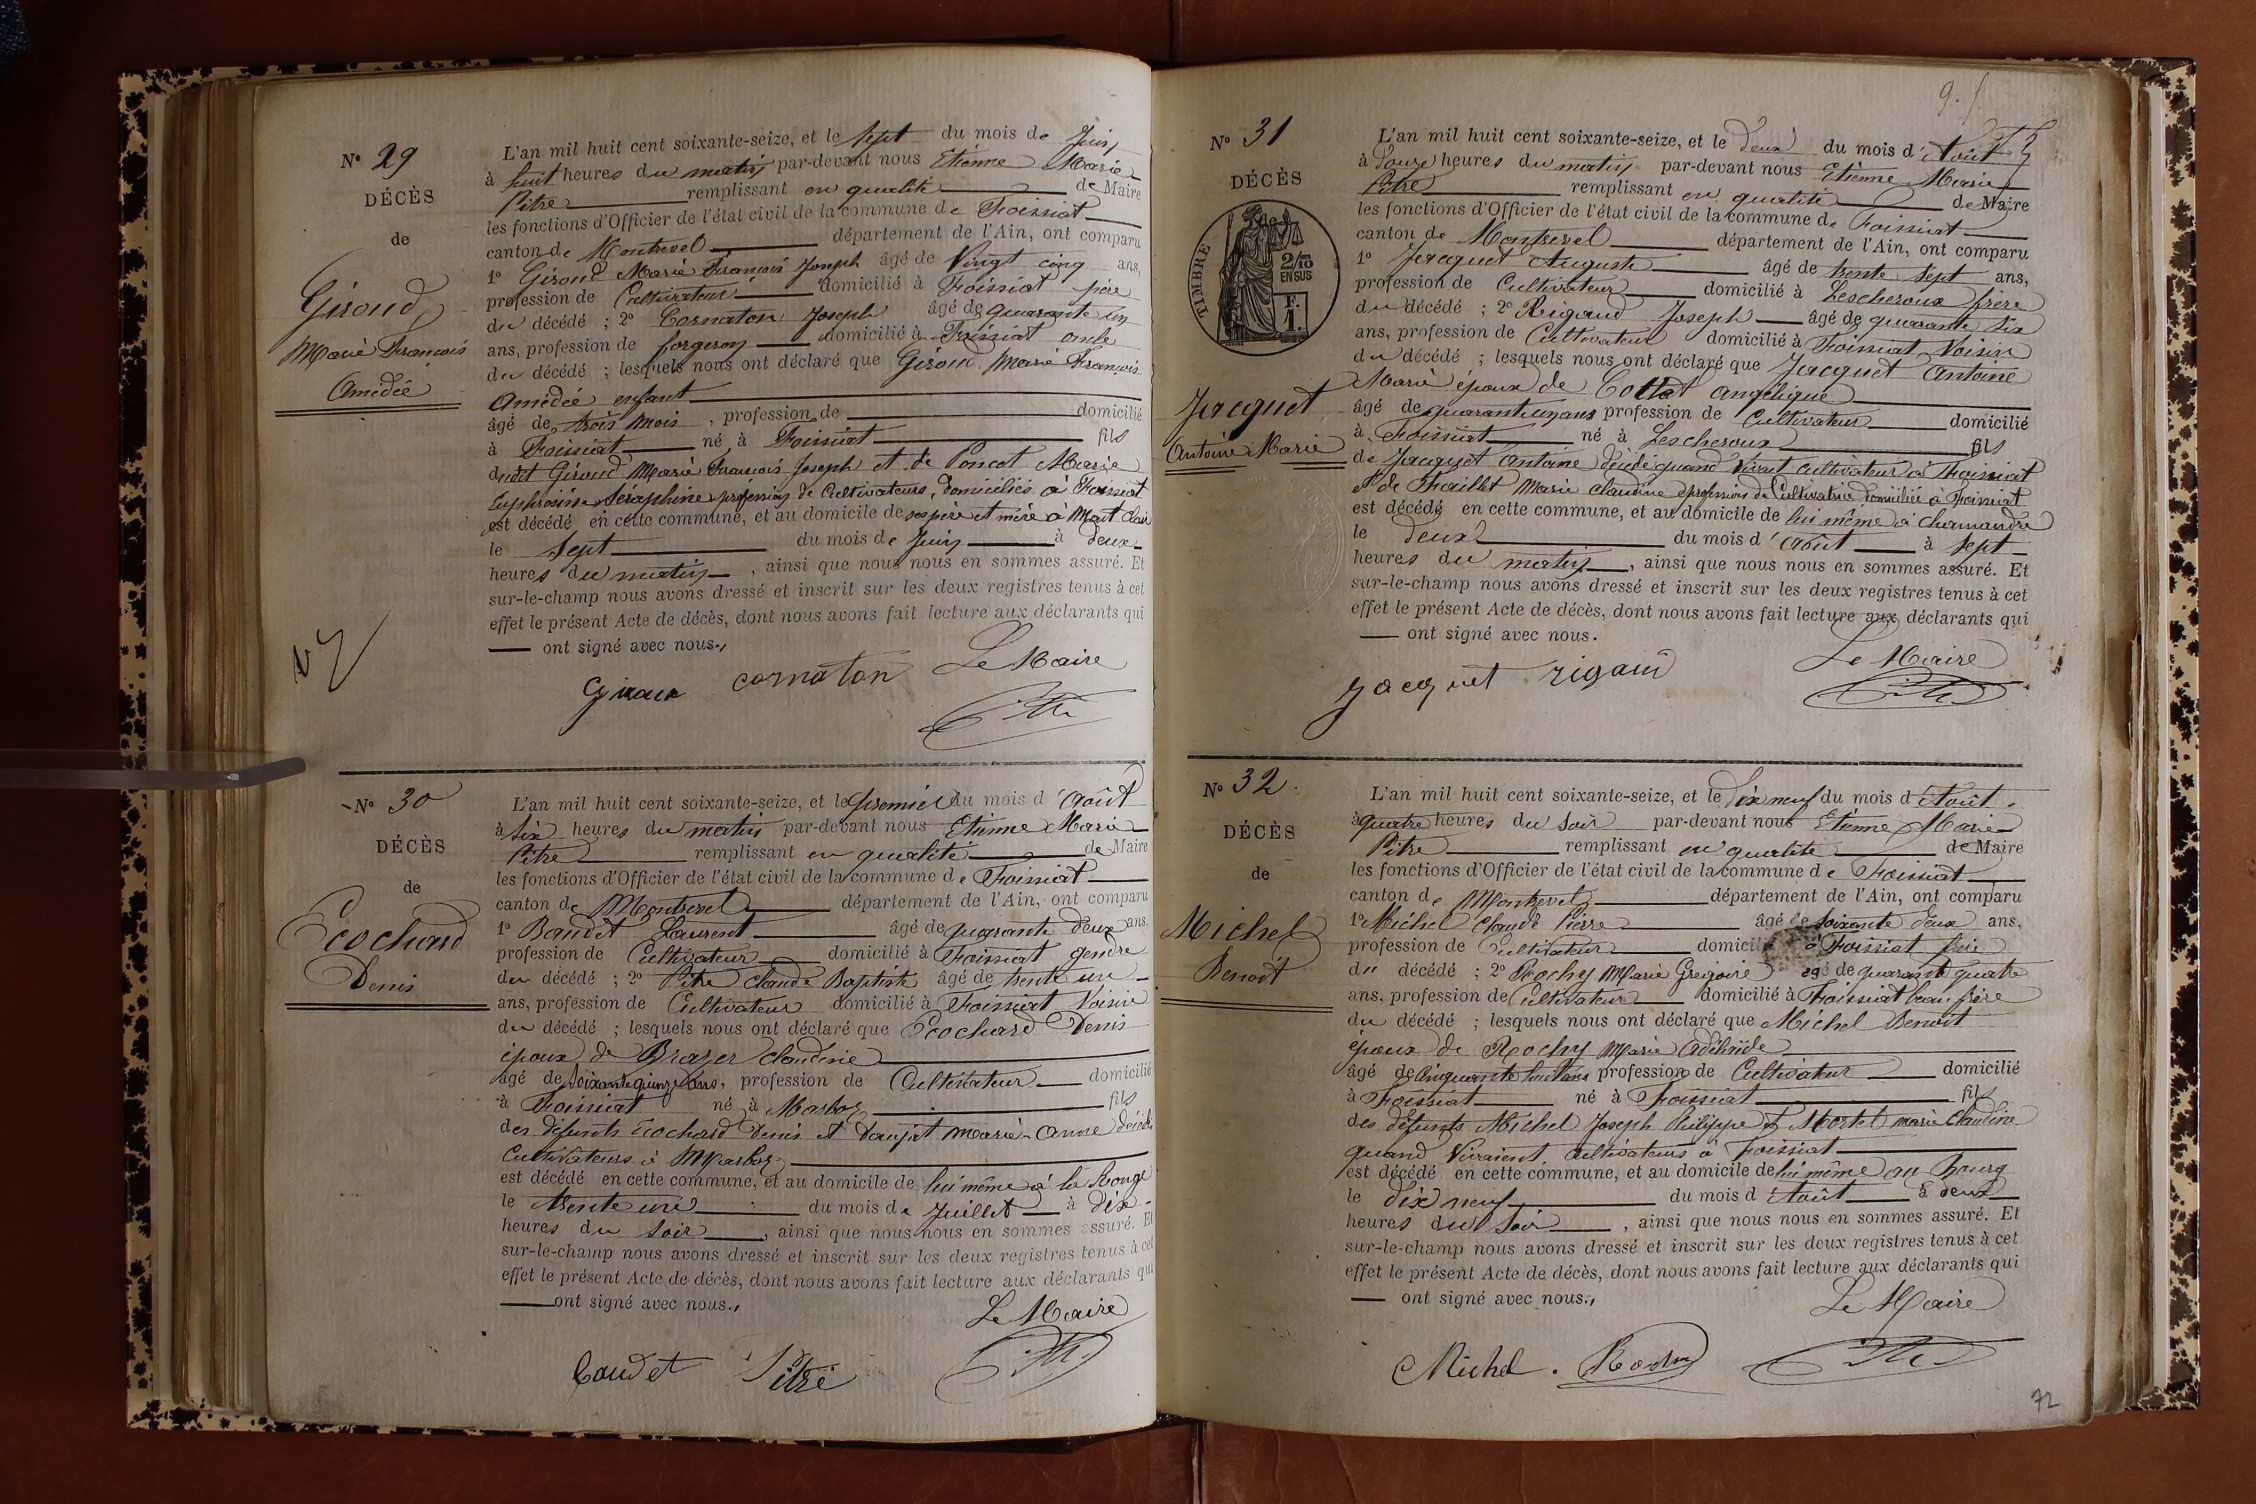 N° 29
DÉCÈS
de
Giroud
Marie François
Amédée
L'an mil huit cent soixante-seize, et le sept du mois de Juin
à huit heures du matin par-devant nous Etienne Marie
Pitre remplissant en qualité de Maire
les fonctions d'Officier de l'état civil de la commune de Foissiat
canton de Montrevel département de l'Ain, ont comparu
1° Giroud Marie François Joseph âgé de Vingt cinq ans,
profession de Cultivateur domicilié à Foissiat père
du décédé ; 2° Cornaton Joseph âgé de quarante un
ans, profession de forgeron domicilié à Foissiat oncle
du décédé ; lesquels nous ont déclaré que Giroud Marie François
Amédée enfant
âgé de trois mois, profession de domicilié
à Foissiat né à Foissiat fils
dudit Giroud Marie François Joseph et de Poncet Marie
Euphrosine Séraphine profession de Cultivateurs, domiciliés à Foissiat
est décédé en cette commune, et au domicile de ses père et mère à
le sept du mois de Juin à deux
heures du matin, ainsi que nous nous en sommes assuré. Et
sur-le-champ nous avons dressé et inscrit sur les deux registres tenus à cet
effet le présent Acte de décès, dont nous avons fait lecture aux déclarants qui
ont signé avec nous.
Le Maire
Giroud cornaton Pitre
N° 30
DÉCÈS
de
Ecochard
Denis
L'an mil huit cent soixante-seize, et le premier du mois d'Août
à six heures du matin par-devant nous Etienne Marie
Pitre remplissant en qualité de Maire
les fonctions d'Officier de l'état civil de la commune de Foissiat
canton de Montrevel département de l'Ain, ont comparu
1° Baudet Laurent âgé de quarante deux ans,
profession de Cultivateur domicilié à Foissiat gendre
du décédé ; 2° Pitre Claude Baptiste âgé de trente un
ans, profession de Cultivateur domicilié à Foissiat Voisin
du décédé ; lesquels nous ont déclaré que Ecochard Denis
époux de Brazer Claudine
âgé de soixante quinze ans, profession de Cultivateur domicilié
à Foissiat né à Marboz fils
des défunts Ecochard Denis et Marie-Anne
Cultivateurs à Marboz
est décédé en cette commune, et au domicile de lui même à la Ronge
le trente un du mois de Juillet à dix
heures du soir, ainsi que nous nous en sommes assuré. Et
sur-le-champ nous avons dressé et inscrit sur les deux registres tenus à cet
effet le présent Acte de décès, dont nous avons fait lecture aux déclarants qui
ont signé avec nous.
Le Maire
Baudet Pitre Pitre
N° 31
DÉCÈS
TIMBRE
2/10
EN SUS
F.
1.
Jacquet
Antoine Marie
L'an mil huit cent soixante-seize, et le deux du mois d'Août
à douze heures du matin par-devant nous Etienne Marie
Pitre remplissant en qualité de Maire
les fonctions d'Officier de l'état civil de la commune de Foissiat
canton de Montrevel département de l'Ain, ont comparu
1° Jacquet Auguste âgé de trente sept ans,
profession de Cultivateur domicilié à Lescheroux frère
du décédé ; 2° Rigaud Joseph âgé de quarante six
ans, profession de Cultivateur domicilié à Foissiat Voisin
du décédé ; lesquels nous ont déclaré que Jacquet Antoine
Marie époux de Cottet Angélique
âgé de quarante un ans profession de Cultivateur domicilié
à Foissiat né à Lescheroux fils
de Jacquet Antoine décédé quand Vivait cultivateur à Foissiat
et de Faillet Marie Claudine profession de Cultivatrice domiciliée à Foissiat
est décédé en cette commune, et au domicile de lui même à Charmandre
le deux du mois d'Août à sept
heures du matin, ainsi que nous nous en sommes assuré. Et
sur-le-champ nous avons dressé et inscrit sur les deux registres tenus à cet
effet le présent Acte de décès, dont nous avons fait lecture aux déclarants qui
ont signé avec nous.
Le Maire
Jacquet rigaud Pitre
N° 32
DÉCÈS
de
Michel
Benoit
L'an mil huit cent soixante-seize, et le dix neuf du mois d'Août
à quatre heures du soir par-devant nous Etienne Marie
Pitre remplissant en qualité de Maire
les fonctions d'Officier de l'état civil de la commune de Foissiat
canton de Montrevel département de l'Ain, ont comparu
1° Michel Claude Pierre âgé de soixante deux ans,
profession de Cultivateur domicilié à Foissiat frère
du décédé ; 2° Rochy Marie Grégoire âgé de quarante quatre
ans, profession de Cultivateur domicilié à Foissiat beau frère
du décédé ; lesquels nous ont déclaré que Michel Benoit
époux de Rochy Marie Adélaïde
âgé de cinquante huit ans profession de Cultivateur domicilié
à Foissiat né à Foissiat fils
des défunts Michel Joseph Philippe et Mortel marie Claudine
quand Vivaient cultivateurs à Foissiat
est décédé en cette commune, et au domicile de lui même au bourg
le dix neuf du mois d'Août à deux
heures du soir, ainsi que nous nous en sommes assuré. Et
sur-le-champ nous avons dressé et inscrit sur les deux registres tenus à cet
effet le présent Acte de décès, dont nous avons fait lecture aux déclarants qui
ont signé avec nous.
Le Maire
Michel. Rochy Pitre
72